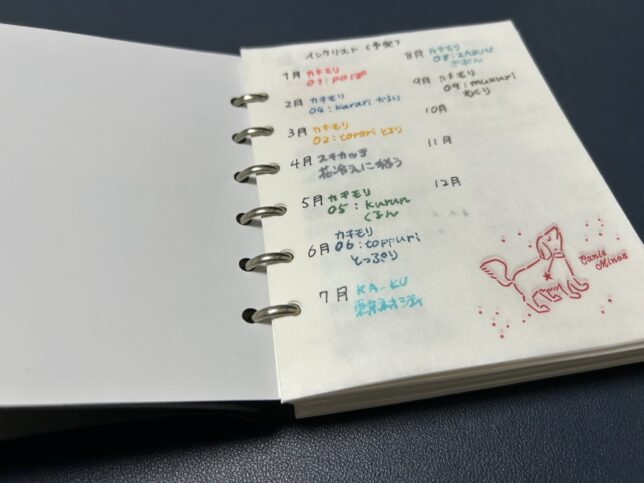 インクリスト(予定)
1月 カキモリ
01: poipo
2月 カキモリ
04: karari からり
3月 カキモリ
02: torori とろり
4月
花冷えに移う
5月 カキモリ
05: kurun
くるん
6月 カキモリ
06: toppuri
とっぷり
7月 KA-KU
8月 カキモリ
08: zabun
ざぶん
9月 カキモリ
09: mukuri
むくり
10月
11月
12月
Canis
Minor